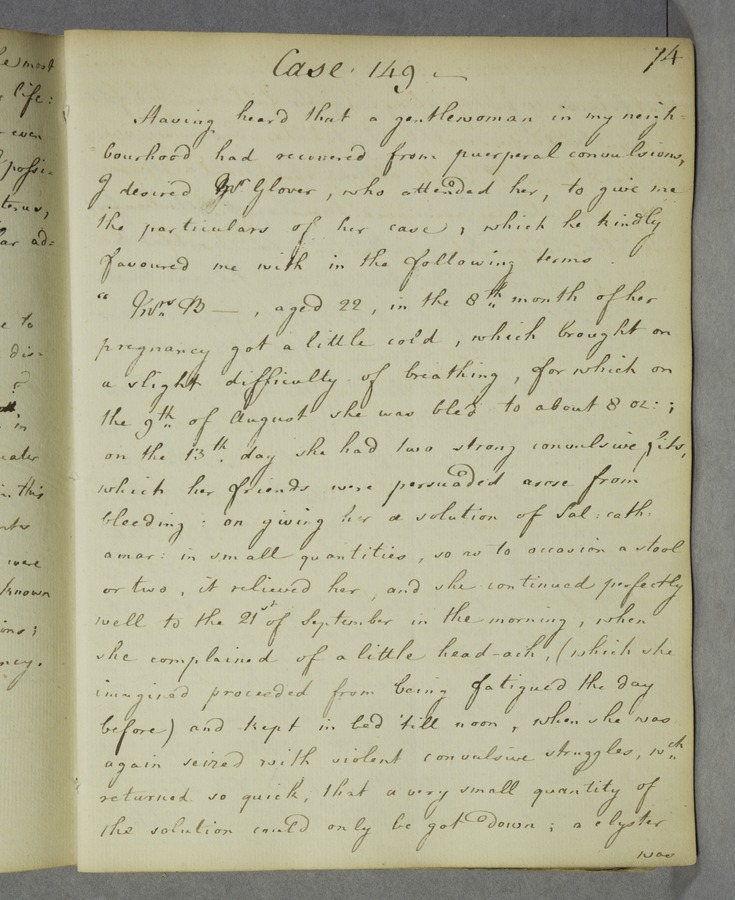 74
Case 149 —
Having heard that a gentlewoman in my neigh=
bourhood had recovered from puerperal convulsions,
I desired Mr Glover, who attended her, to give me
the particulars of her case; which he kindly
favoured me with in the following terms.
" Mrs B—, aged 22, in the 8th month of her
pregnancy got a little cold, which brought on
a slight difficulty of breathing, for which on
the 9th of August she was bled to about 8 oz:;
on the 13th day she had two strong convulsive fits,
which her friends were persuaded arose from
bleeding: on giving her a solution of Sal: cath:
amar: in small quantities, so as to occasion a stool
or two, it relieved her, and she continued perfectly
well to the 21st of September in the morning, when
she complained of a little head-ach, (which she
imagined proceeded from being fatigued the day
before) and kept in bed 'till noon, when she was
again seized with violent convulsive struggles, wch
returned so quick, that a very small quantity of
the solution could only be got down; a clyster
was
e most
life:
even
possi=
terus,
lar ad=
e to
dis=
?
in
eater
in this
nts
were
known
ions;
ncy.